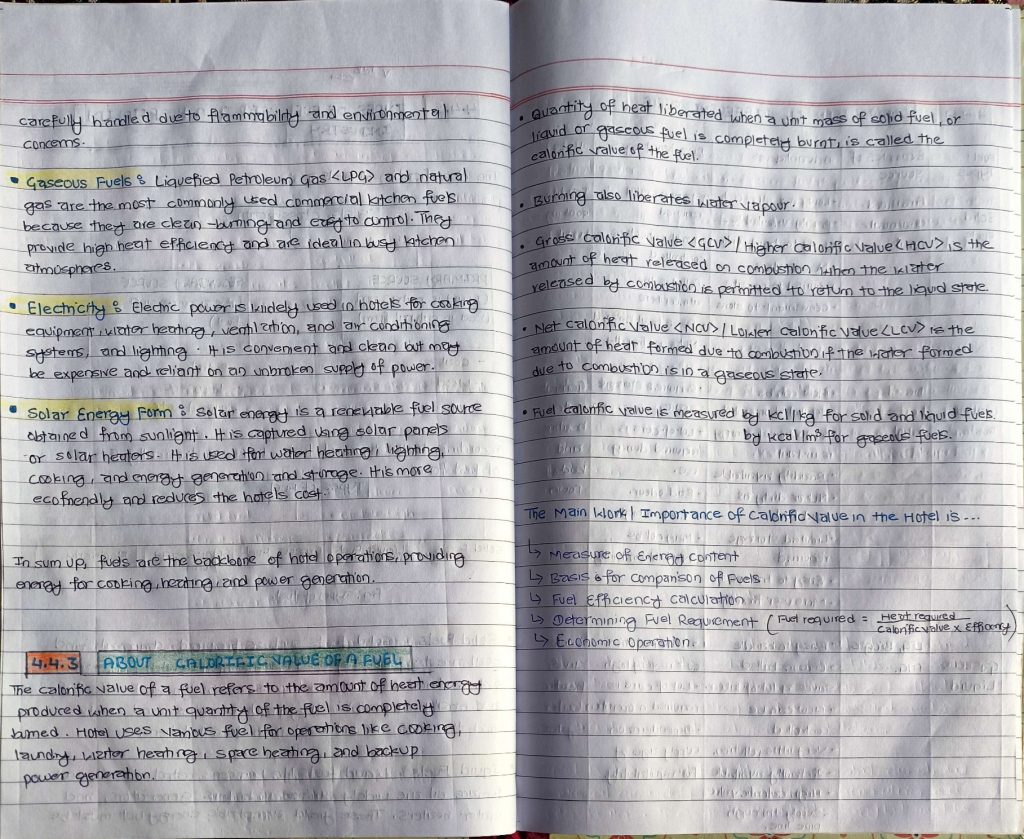 carefully handled due to flammability and environmental
concerns.
• Gaseous Fuels : Liquefied Petroleum Gas <LPG> and natural
gas are the most commonly used commercial kitchen fuels
because they are clean-burning and easy to control. They
provide high heat efficiency and are ideal in busy kitchen
atmospheres.
• Electricity : Electric power is widely used in hotels for cooking
equipment, water heating, ventilation, and air conditioning
systems, and lighting. It is convenient and clean but may
be expensive and reliant on an unbroken supply of power.
• Solar Energy Form : Solar energy is a renewable fuel source
obtained from sunlight. It is captured using solar panels
or solar heaters. It is used for water heating, lighting,
cooking, and energy generation and storage. It is more
ecofriendly and reduces the hotels cost.
In sum up, fuels are the backbone of hotel operations, providing
energy for cooking, heating, and power generation.
4.4.3 ABOUT CALORIFIC VALUE OF A FUEL
The calorific value of a fuel refers to the amount of heat energy
produced when a unit quantity of the fuel is completely
burned. Hotel uses various fuel for operations like cooking,
laundry, water heating, space heating, and backup
power generation.
• Quantity of heat liberated when a unit mass of solid fuel, or
liquid or gaseous fuel is completely burnt, is called the
calorific value of the fuel.
• Burning also liberates water vapour.
• Gross Calorific Value <GCV> / Higher Calorific Value <HCV> is the
amount of heat released on combustion when the water
released by combustion is permitted to return to the liquid state.
• Net Calorific Value <NCV> / Lower Calorific Value <LCV> is the
amount of heat formed due to combustion if the water formed
due to combustion is in a gaseous state.
• Fuel calorific value is measured by kcl/kg for solid and liquid fuels.
by kcal/m³ for gaseous fuels.
The Main Work / Importance of Calorific Value in the Hotel is ...
↳ Measure of Energy content
↳ Basis for comparison of Fuels
↳ Fuel Efficiency calculation
↳ Determining Fuel Requirement (Fuel required = Heat required / Calorific value × Efficiency)
↳ Economic Operation.